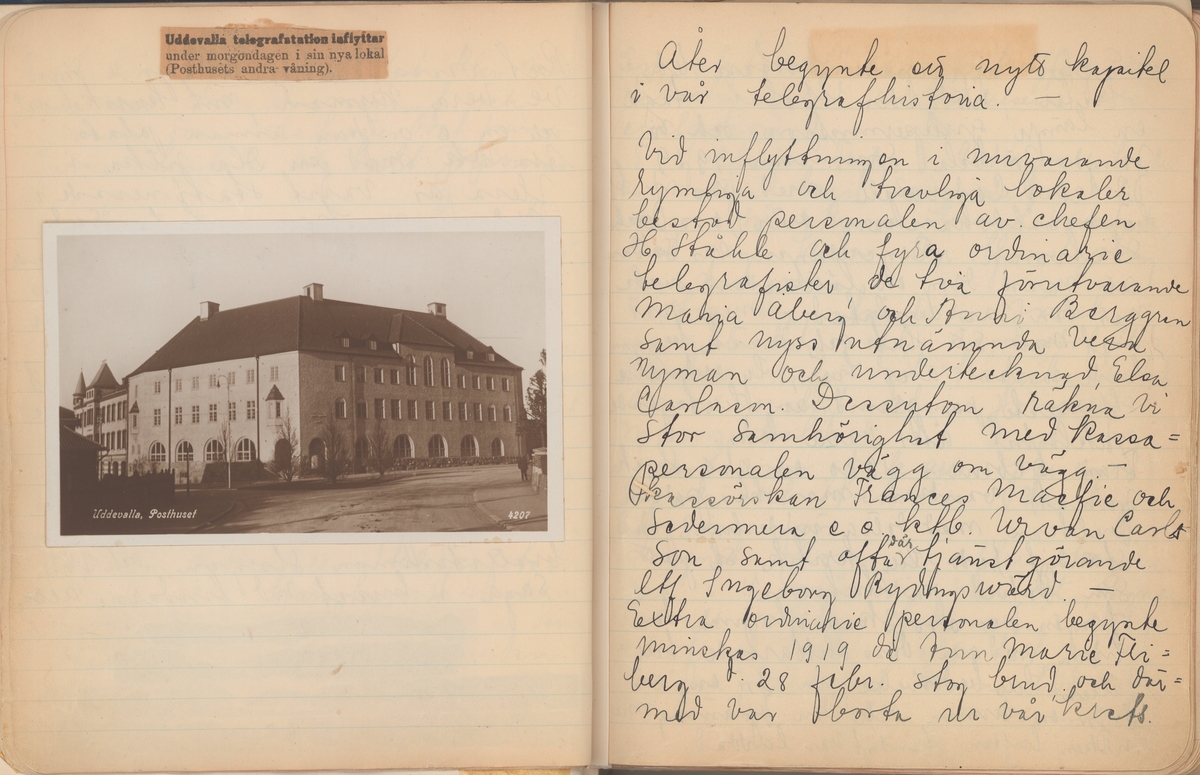 Uddevalla telegrafstation inflyttar
under morgondagen i sin nya lokal
(Posthusets andra våning).
Uddevalla, Posthuset
4207
Åter begynte ett nytt kapitel
i vår telegrafhistoria. —
Vid inflyttningen i nuvarande
rymliga och trevliga lokaler
bestod personalen av chefen
H Ståhle och fyra ordinarie
telegrafister, de två förutvarande
Maria Åberg och Anni Berggren
samt nyss utnämnda Vera
Nyman och undertecknad, Elsa
Carlsson. Dessutom räkna vi
stor samhörighet med kassa=
personalen vägg om vägg. —
Kassörskan Frances Macfie och
sedermera e o ktb. Urvan Carls
son samt ofta där tjänstgörande
Ingeborg Rydingsvärd. —
Extra ordinarie personalen begynte
minskas 1919 då Ann Marie Fri=
berg d. 28 febr. stog brud, och där=
med var borta ur vår krets.